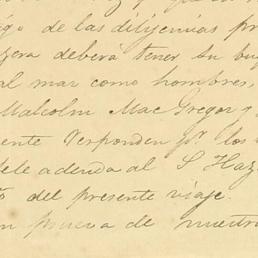 de las diligencias
deberá tener su
al mar como hombres,
Malcolm Mac Gregor y
ente responden Jn. los
adenda al S Haz
del presente viaje.
de nuestr